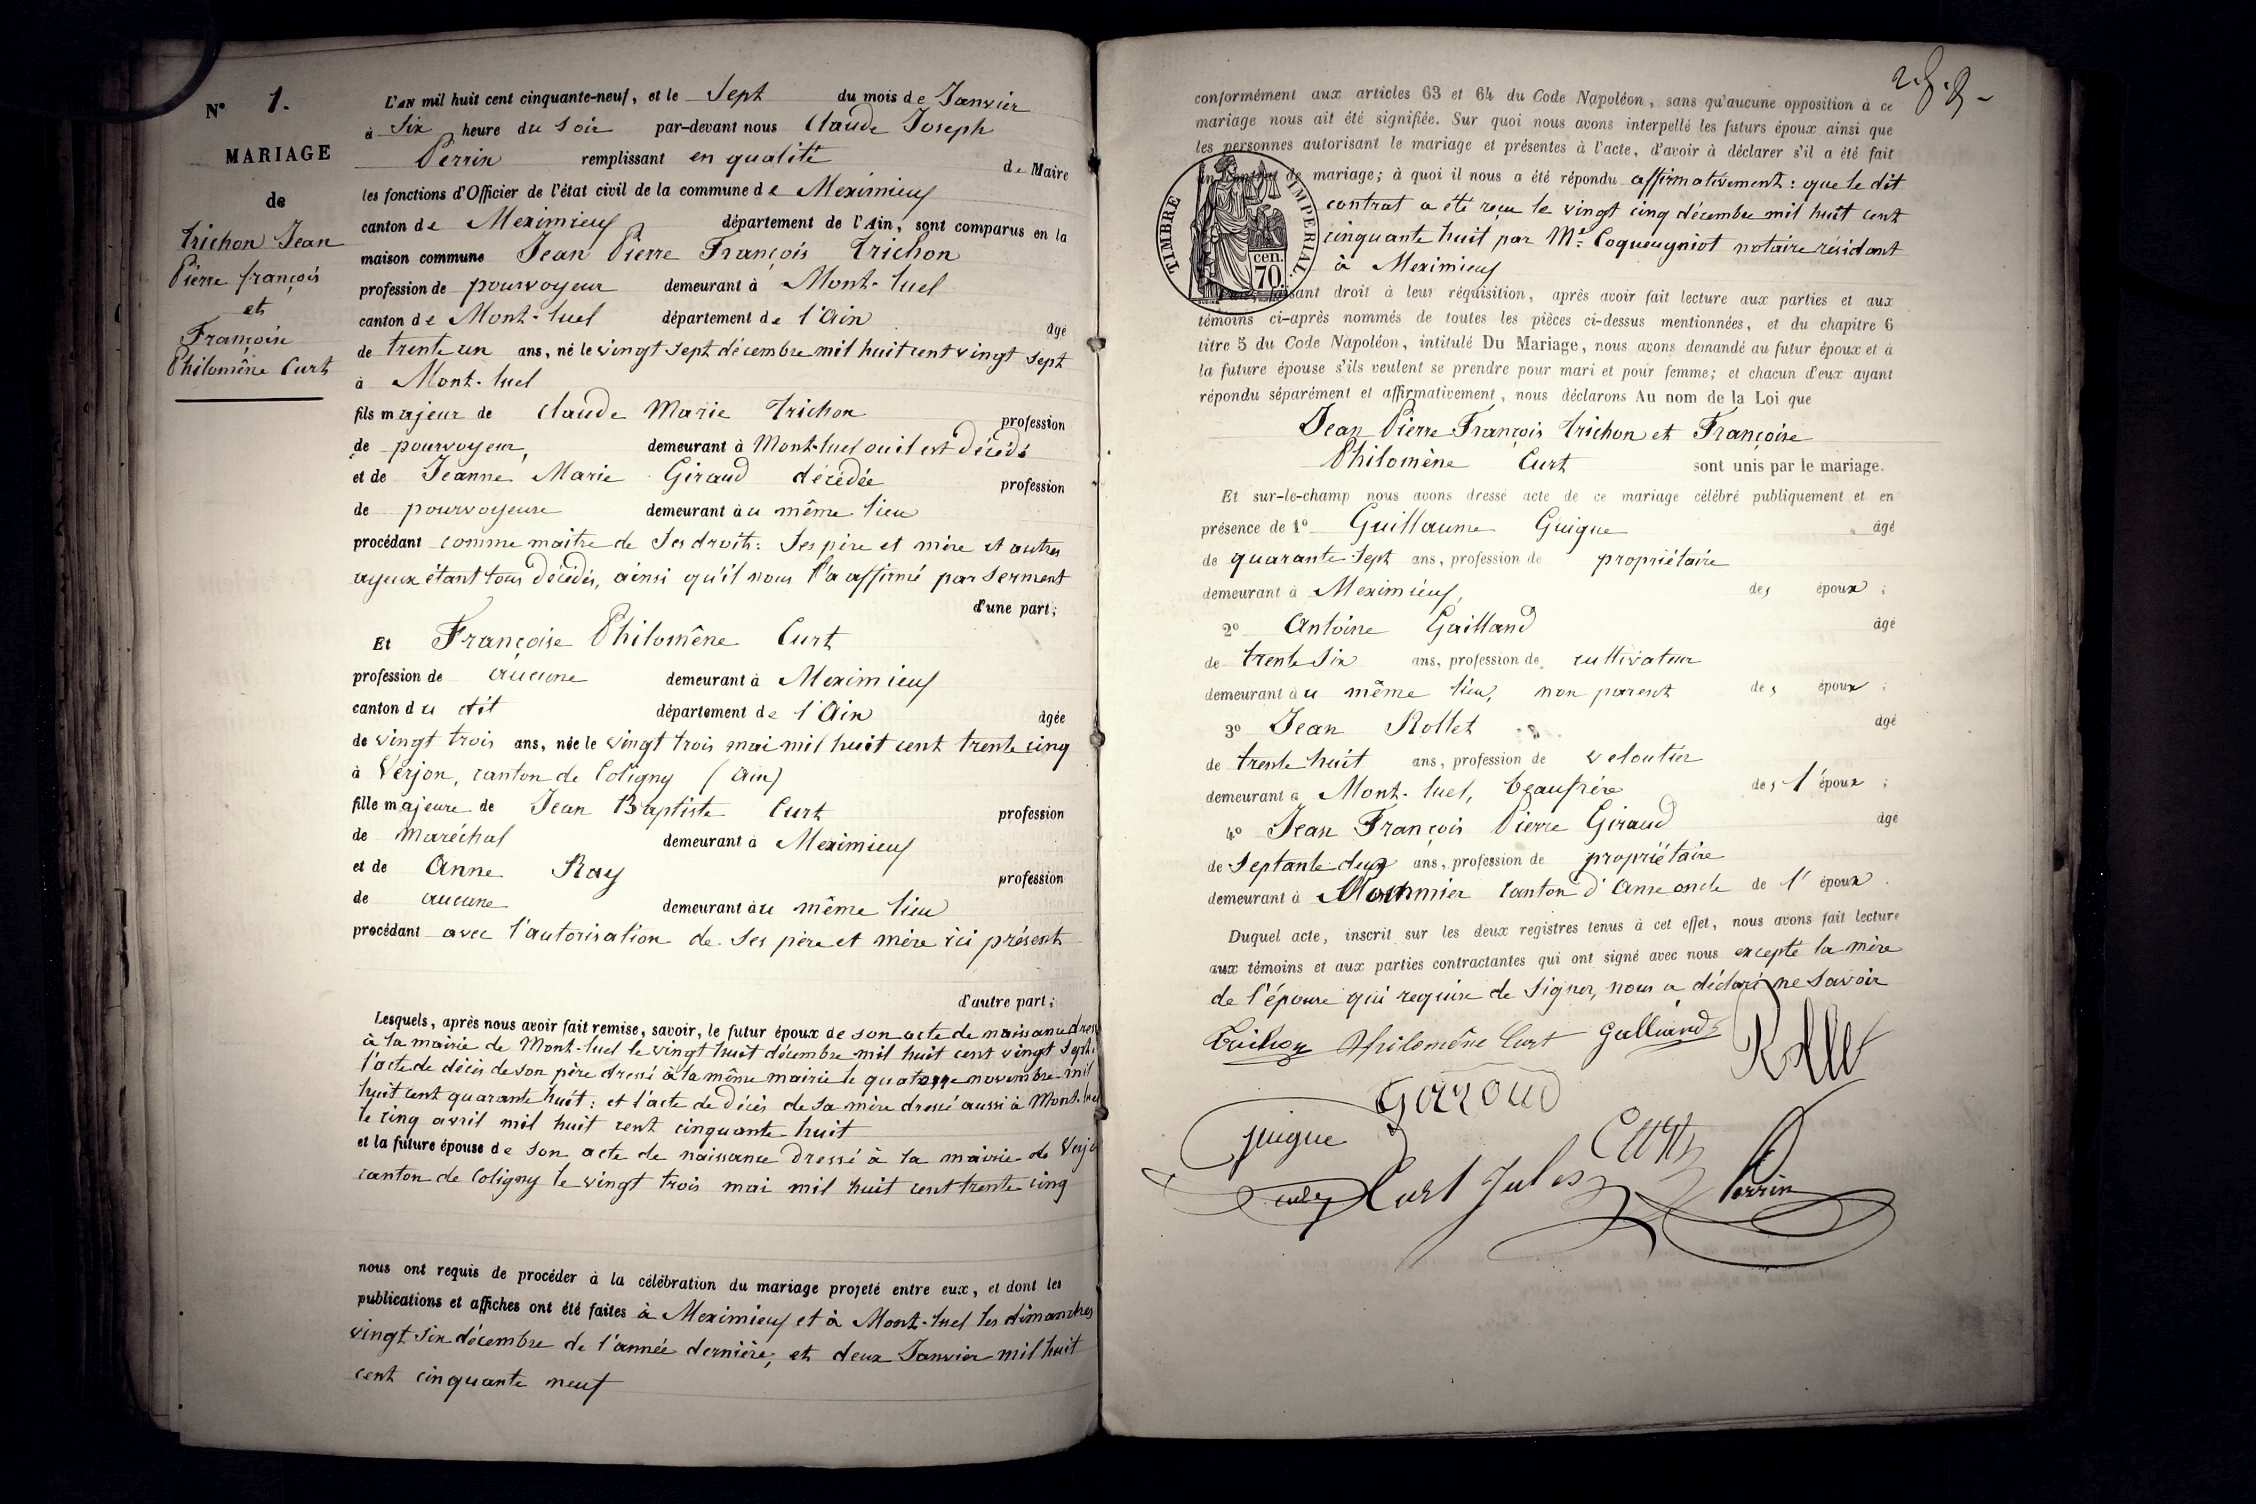 N° 1.
MARIAGE
de
Trichon Jean
Pierre françois
et
Françoise
Philomène Curt
L'AN mil huit cent cinquante-neuf, et le Sept du mois de Janvier
à Six heure du Soir par-devant nous Claude Joseph
Perrin remplissant en qualité de Maire
les fonctions d'Officier de l'état civil de la commune de Meximieux
canton de Meximieux département de l'Ain, sont comparus en la
maison commune Jean Pierre François Trichon
profession de pourvoyeur demeurant à Mont-luel
canton de Mont-luel département de l'Ain âgé
de trente un ans, né le vingt sept décembre mil huit cent vingt sept
à Mont-luel
fils majeur de Claude Marie Trichon profession
de pourvoyeur, demeurant à Mont-luel ou il est décédé
et de Jeanne Marie Giraud décédée profession
de pourvoyeuse demeurant au même lieu
procédant comme maître de ses droits: ses père et mère et autres
ayeux étant tous décédés, ainsi qu'il nous l'a affirmé par serment
d'une part;
Et Françoise Philomène Curt
profession de aucune demeurant à Meximieux
canton du dit département de l'Ain âgée
de vingt trois ans, née le vingt trois mai mil huit cent trente cinq
à Verjon, canton de Coligny (Ain)
fille majeure de Jean Baptiste Curt profession
de maréchal demeurant à Meximieux
et de Anne Ray profession
de aucune demeurant au même lieu
procédant avec l'autorisation de ses père et mère ici présent
d'autre part;
Lesquels, après nous avoir fait remise, savoir, le futur époux de son acte de naissance dres
à la mairie de Mont-luel le vingt huit décembre mil huit cent vingt sept:
l'acte de décès de son père dressé à la même mairie le quatorze novembre mil
huit cent quarante huit: et l'acte de décès de sa mère dressé aussi à Mont-luel
le cinq avril mil huit cent cinquante huit
et la future épouse de son acte de naissance dressé à la mairie de Verjo
canton de Coligny le vingt trois mai mil huit cent trente cinq
nous ont requis de procéder à la célébration du mariage projeté entre eux, et dont les
publications et affiches ont été faites à Meximieux et à Mont-luel les dimanches
vingt six décembre de l'année dernière, et deux Janvier mil huit
cent cinquante neuf
conformément aux articles 63 et 64 du Code Napoléon, sans qu'aucune opposition à ce
mariage nous ait été signifiée. Sur quoi nous avons interpellé les futurs époux ainsi que
les personnes autorisant le mariage et présentes à l'acte, d'avoir à déclarer s'il a été fait
un contrat de mariage; à quoi il nous a été répondu affirmativement: que le dit
contrat a été reçu le vingt cinq décembre mil huit cent
cinquante huit par Me Coqueugniot notaire résidant
à Meximieux
TIMBRE IMPERIAL.
cen.
70
faisant droit à leur réquisition, après avoir fait lecture aux parties et aux
témoins ci-après nommés de toutes les pièces ci-dessus mentionnées, et du chapitre 6
titre 5 du Code Napoléon, intitulé Du Mariage, nous avons demandé au futur époux et à
la future épouse s'ils veulent se prendre pour mari et pour femme; et chacun d'eux ayant
répondu séparément et affirmativement, nous déclarons Au nom de la Loi que
Jean Pierre François Trichon et Françoise
Philomène Curt sont unis par le mariage.
Et sur-le-champ nous avons dressé acte de ce mariage célébré publiquement et en
présence de 1° Guillaume Guigue âgé
de quarante sept ans, profession de propriétaire
demeurant à Meximieux, des époux;
2° Antoine Gailland âgé
de trente six ans, profession de cultivateur
demeurant au même lieu, non parent des époux;
3° Jean Rollet âgé
de trente huit ans, profession de veloutier
demeurant à Mont-luel, beaufrère des l'époux;
4° Jean François Pierre Giraud âgé
de septante deux ans, profession de propriétaire
demeurant à canton d'Anse oncle de l'époux.
Duquel acte, inscrit sur les deux registres tenus à cet effet, nous avons fait lecture
aux témoins et aux parties contractantes qui ont signé avec nous excepté la mère
de l'épouse qui requise de signer, nous a déclaré ne savoir
Trichon Philomène Curt Galliand Rollet
Girroud
guigue Curt
Curt Jules Perrin